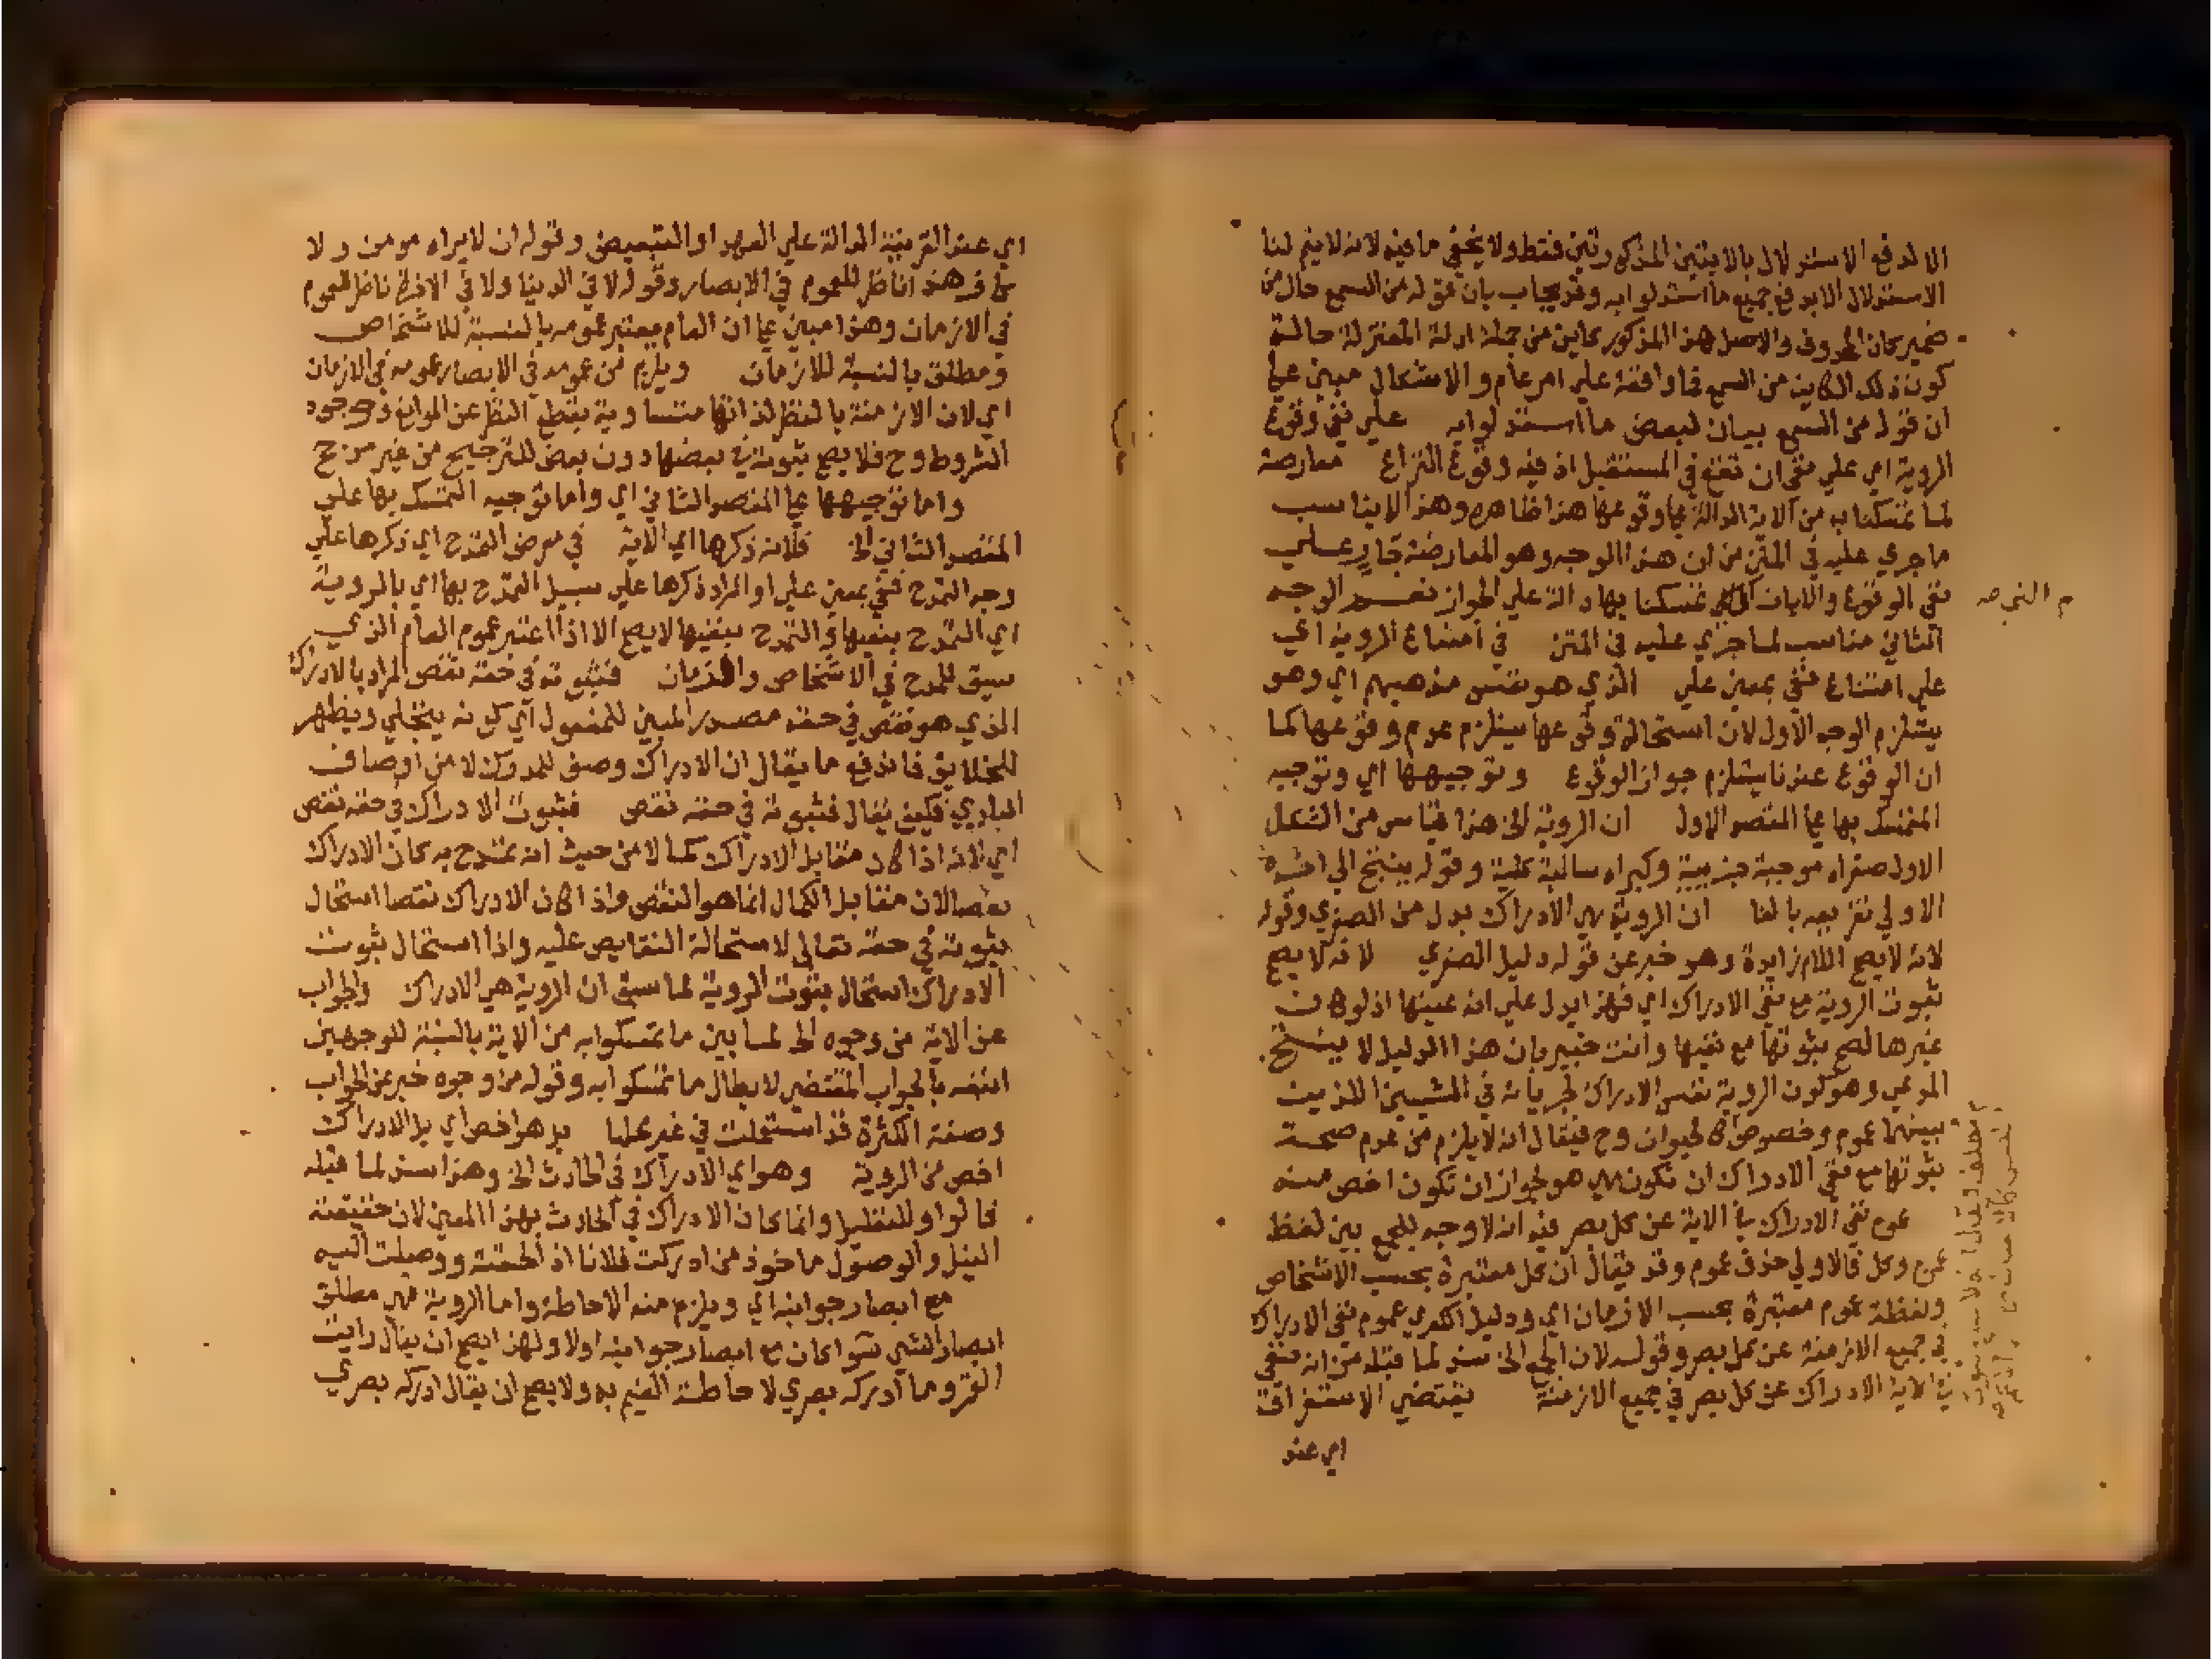 الا لدفع الاستدلال بالايتين المذكورتين فقط ولا يخفي ما فيه لانه لا يتم لنا
الاستدلال الا بدفع جميع ما استدلوا به وقد يجاب بان قوله من السمع حال من
ضمير كان المحذوف والاصل هذا المذكور كاين من جملة ادلة المعتزلة حالة
كون ذلك الكاين من السمع فاوافقه علي امر عام والاشكال مبني علي
ان قوله من السمع بيان لبعض ما استدلوا به علي نفي وقوع
الروية اي علي نفي ان تقع في المستقبل اذ فيه وقوع النزاع معارضة
لما تمسكنا به من الاية الدالة علي وقوعها هذا ظاهره وهذا لا يناسب
ما جري عليه في المتن من ان هذا الوجه وهو المعارضة جار علي
نفي الوقوع والايات التي تمسكنا بها دالة علي الجواز نعم الوجه
الثاني مناسب لما جري عليه في المتن في امتناع الروية اي
علي امتناع ففي بمعني علي الذي هو نفس مذهبهم اي وهو
يستلزم الوجه الاول لان استحالة وقوعها يستلزم عدم وقوعها كما
ان الوقوع عندنا يستلزم جواز الوقوع وتوجيهها اي وتوجيه
التمسك بها علي المقصد الاول ان الروية الخ هذا قياس من الشكل
الاول صغراه موجبة جزيية وكبراه سالبة كلية وقوله ينتج الي اخره
الاولي تفريعه بالفا ان الروية هي الادراك بدل من الصغري وقوله
لانه لا يصح اللام زايدة وهو خبر عن قوله دليل الصغري لانه لا يصح
ثبوت الروية مع نفي الادراك اي فهذا يدل علي انه عينها اذ لو كانت
غيرها لصح ثبوتها مع نفيها وانت خبير بان هذا الدليل لا ينتج
المدعي وهو كون الروية نفس الادراك لجريانه في الشيين اللذين
بينهما عموم وخصوص كالحيوان وح فيقال انه لا يلزم من عدم صحة
ثبوتها مع نفي الادراك ان تكون هي هو لجواز ان تكون اخص منه
عموم نفي الادراك في الاية عن كل بصر فيه انه لا وجه للجمع بين لفظ
عموم وكل فالاولي حذف عموم وقد يقال ان كل معتبرة بحسب الاشخاص
ولفظة عموم معتبرة بحسب الازمان اي ودليل الكبري عموم نفي الادراك
في جميع الازمنة عن كل بصر وقوله لان الجمع الخ سند لما قبله من انه نفي
في الاية الادراك عن كل بصر في جميع الازمنة يقتضي الاستغراق
اي عند
اي عند القرينة الدالة علي العهد او التبعيض وقوله ان لا يراه مومن ولا
كافر هذا ناظر للعموم في الابصار وقوله لا في الدنيا ولا في الاخرة ناظر للعموم
في الازمان وهذا مبني علي ان العام يعتبر عمومه بالنسبة للاشخاص
ومطلق بالنسبة للازمان ويلزم من عمومه في الابصار عمومه في الازمان
اي لان الازمنة بالنظر لذاتها متساوية بقطع النظر عن الموانع ووجود
الشروط وح فلا يصح ثبوته في بعضها دون بعض للترجيح من غير مرجح
واما توجيهها علي المقصد الثاني اي واما توجيه التمسك بها علي
المقصد الثاني الخ فلانه ذكرها اي الاية في معرض التمدح اي ذكرها علي
وجه التمدح ففي بمعني علي او المراد ذكرها علي سبيل التمدح بها اي بالروية
اي التمدح بنفيها والتمدح بنفيها لا يصح الا اذا اعتبر عموم العام الذي
سيق للمدح في الاشخاص والازمان فثبوته في حقه نقص المراد بالادراك
الذي هو نقص في حقه مصدر المبني للمفعول اي كونه ينجلي ويظهر
للخلايق فاندفع ما يقال ان الادراك وصف للمدرك لا من اوصاف
الباري فكيف يقال فثبوته في حقه نقص فثبوت الادراك في حقه نقص
اي لانه اذا كان مقابل الادراك كمالا من حيث انه تمدح به كان الادراك
نقصا لان مقابل الكمال انما هو النقص واذا كان الادراك نقصا استحال
ثبوته في حقه تعالي لاستحالة النقايص عليه واذا استحال ثبوت
الادراك استحال ثبوت الروية لما سبق ان الروية هي الادراك والجواب
عن الاية من وجوه الخ لما بين ما تمسكوا به من الاية بالنسبة للوجهين
اتبعه بالجواب المقتضي لابطال ما تمسكوا به وقوله من وجوه خبر عن الجواب
وصيغة الكثرة قد استعملت في غير محلها بل هو اخص اي بل الادراك
اخص من الروية وهو اي الادراك في الحادث الخ وهذا سند لما قبله
فالواو للتعليل وانما كان الادراك في الحادث بهذا المعني لان حقيقته
النيل والوصول ماخوذ من ادركت فلانا اذ الحقته ووصلت اليه
مع ابصار جوانبه اي ويلزم منه الاحاطة واما الروية فهي مطلق
ابصار الشي سوا كان مع ابصار جوانبه اولا ولهذا يصح ان يقال رايت
القمر وما ادركه بصري لاحاطة الغيم به ولا يصح ان يقال ادركه بصري